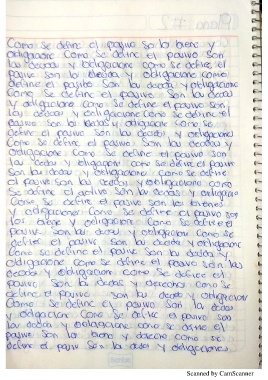 Como se define el pasivo Son los bienes y
obligaciones Como Se define el pasivo Son
las deudas y obligaciones como se define el
pasivo Son las deudas y obligaciones como
define el pasivo Son las deudas y obligaciones
Como Se define el pasivo Son las deudas
y obligaciones Como Se define el pasivo Son
las deudas y obligaciones como Se define el
pasivo Son las deudas y obligaciones Como Se
define el pasivo Son las deudas y obligaciones
Como Se define el pasivo Son las deudas y
obligaciones Como Se define el pasivo Son
las deudas y obligaciones como se define el pasivo
Son las deudas y obligaciones como Se define
el pasivo Son las deudas y obligaciones como
Se define el pasivo Son las deudas y obligaciones
Como Se define el pasivo Son los bienes
y obligaciones Como Se define el pasivo Son
los bienes y obligaciones Como Se define el
pasivo Son las deudas y obligaciones Como Se
define el pasivo Son las deudas y obligaciones
como Se define el pasivo Son las deudas y
obligaciones Como Se define el pasivo Son las
deudas y obligaciones Como Se define el
pasivo Son las deudas y derechos como Se
define el pasivo Son las deudas y obligaciones
Como Se define el pasivo Son las deudas
y obligaciones Como Se define el pasivo Son
las deudas y obligaciones como se define el
pasivo Son los bienes y derechos como se
define el pasivo Son las deudas y obligaciones
Scanned by CamScanner